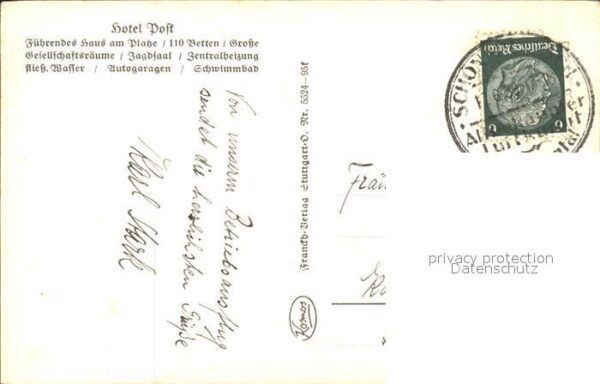 Hotel Post
Führendes Haus am Platze / 110 Betten / Große
Gesellschaftsräume / Jagdsaal / Zentralheizung
fließ. Wasser / Autogaragen / Schwimmbad
Von unserm Betriebsausflug
sendet die herzlichsten Grüße
Karl Stark
Franckh-Verlag Stuttgart-O. Nr. 5524-95f
Kosmos
Deutsches Reich
6 6
SCHÖN
Luftkurort
Frän
privacy protection
Datenschutz